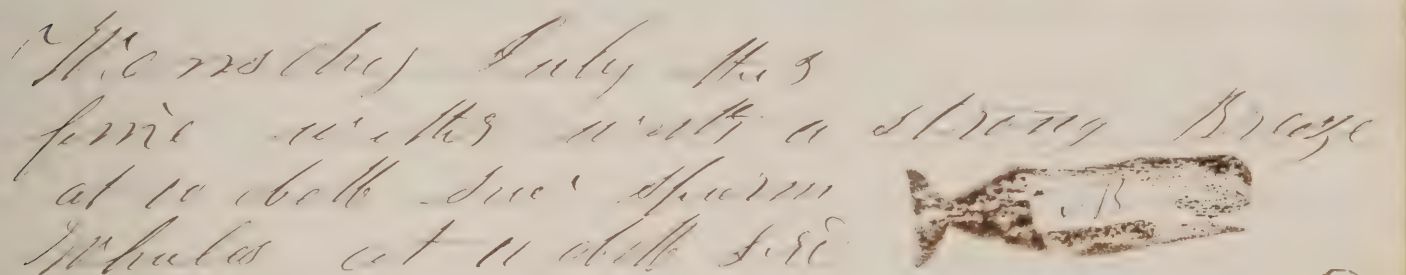 Wensday July the 9
fine wether with a strong Breaze
at 10 clock sue sparm
Whales at 11 clock